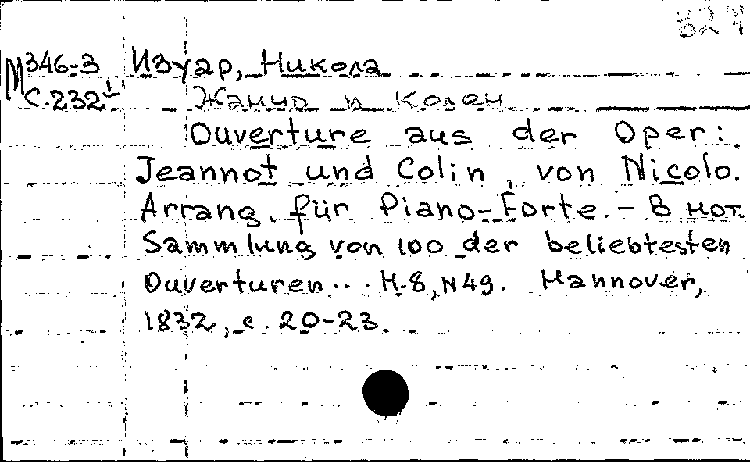 М346-3 Изуар, Никола
С.232¹ Жанно и Колен
Ouverture aus der Oper:
Jeannot und Colin, von Nicolo.
Arrang. für Piano-Forte. – В нот.
Sammlung von 100 der beliebtesten
Ouverturen... H.8, N49. Hannover,
1832, с. 20-23.